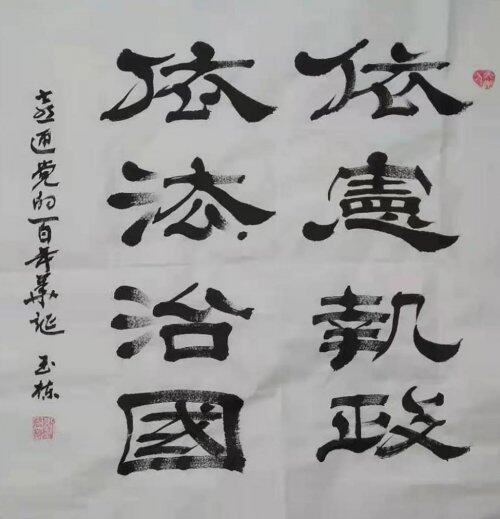 依憲執政
依法治國
喜迎党的百年華诞 玉栋